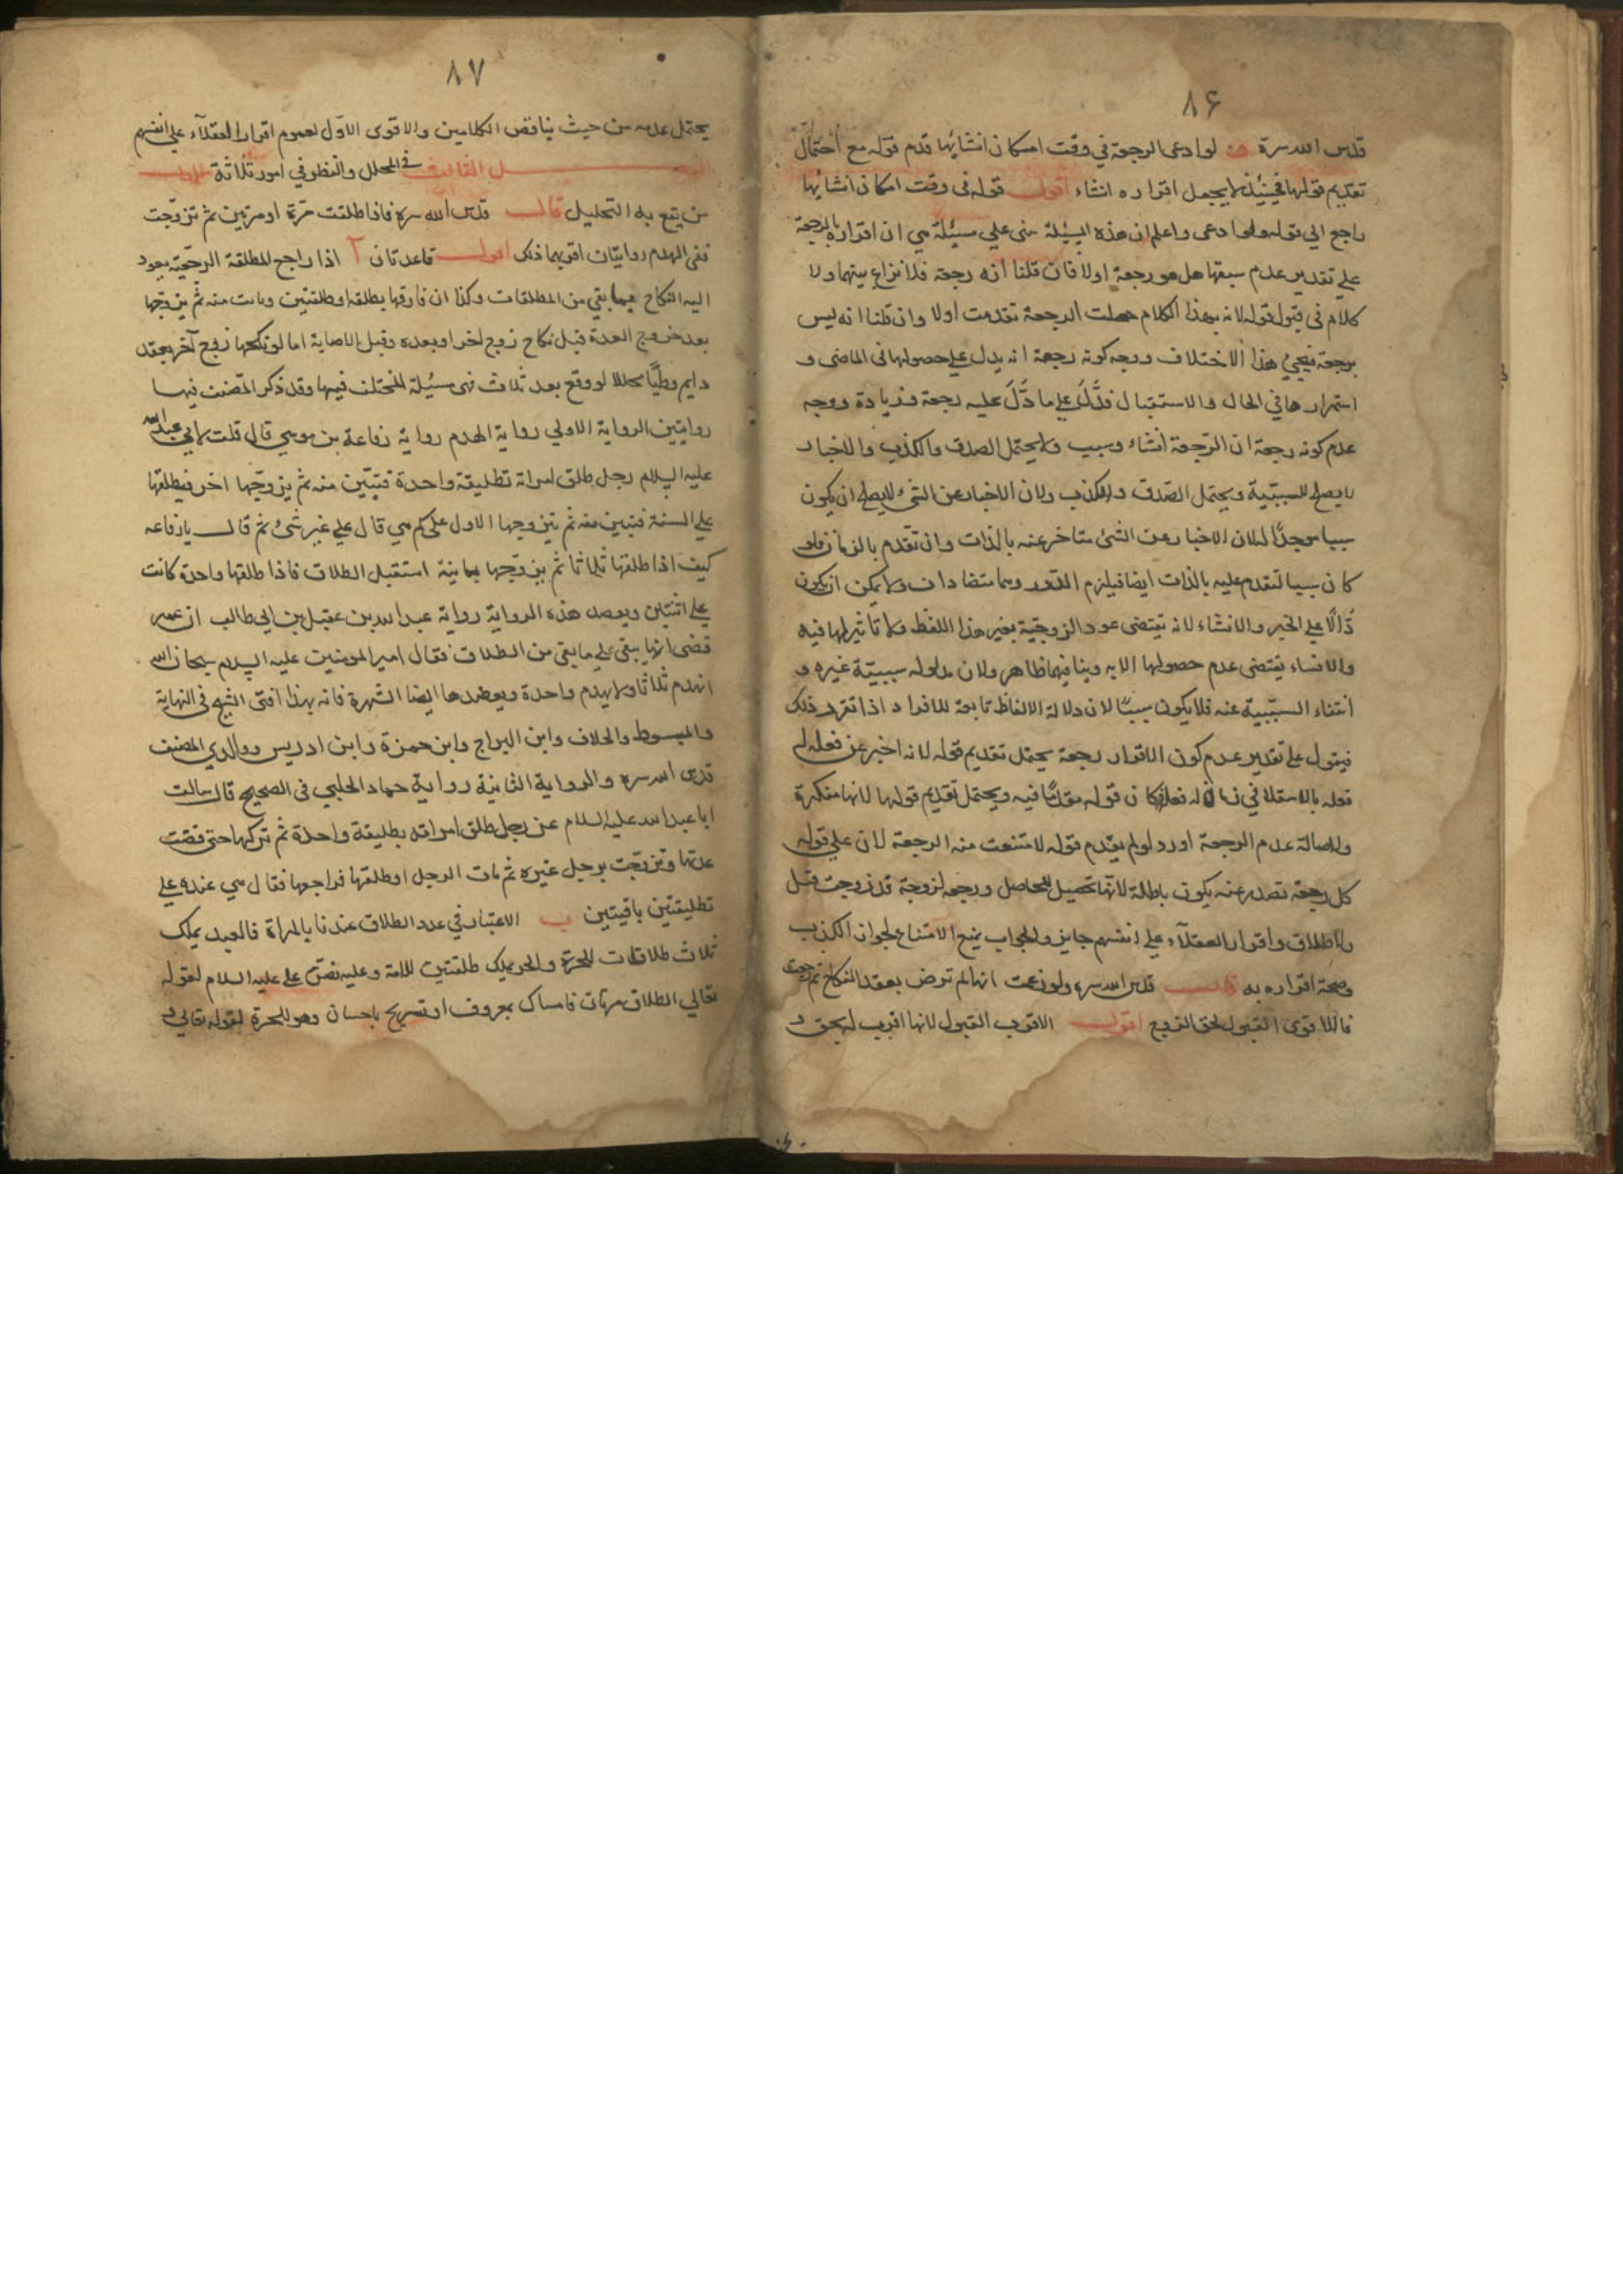 ٨۶
قدس الله سره لو ادعى الرجعة في وقت امكان انشائها قدم قوله مع احتمال
تقديم قولها فحينئذ لا يجعل اقراره انشاء اقول قوله في وقت امكان انشائها
راجع الى قوله ولو ادعى واعلم ان هذه المسئلة مبنى على مسئلة هي ان اقراره بالرجعة
على تقدير عدم سبقها هل هو رجعة اولا فان قلنا انه رجعة فلا نزاع بينهما ولا
كلام في قبول قوله لانه بهذا الكلام حصلت الرجعة تقدمت اولا وان قلنا انه ليس
برجعة فيجئ هذا الاختلاف ووجه كونه رجعة انه يدل على حصولها في الماضى و
استمرارها في الحال والاستقبال فدل على ما دل عليه رجعة وزيادة ووجه
عدم كونه رجعة ان الرجعة انشاء وسبب ولا يحتمل الصدق والكذب والاخبار
لا يصلح للسببية ويحتمل الصدق والكذب ولان الاخبار عن الشئ لا يصلح ان يكون
سببا موجدا له لان الاخبار عن الشئ متاخر عنه بالذات وان تقدم بالزمان فلو
كان سببا لتقدم عليه بالذات ايضا فيلزم الدور وهما متضادان ولا يمكن ان يكون
دالا على الخبر والانشاء لانه يقتضى عود الزوجية بغير هذا اللفظ ولا تأثير لها فيه
والانشاء يقتضى عدم حصولها الا به وتنافيهما ظاهر ولان مدلوله سببية غيره و
انتفاء السببية عنه فلا يكون سببا لان دلالة الالفاظ تابعة للافراد اذا تقرر ذلك
فيقول على تقدير عدم كون الاقرار رجعة يحتمل تقديم قوله لانه اخبر عن فعله له
فعله بالاستقلال في زمان له فعله فكان قوله مقدما فيه ويحتمل تقديم قولها لانها منكرة
ولاصالة عدم الرجعة اورد لو لم يقدم قوله لامتنعت منه الرجعة لان على قوله
كل رجعة تصدر عنه يكون باطلة لانها تحصيل للحاصل ورجعة لزوجة قد زوجت قبل
والاطلاق واقرار العقلاء على انفسهم جايز والجواب يمنع الامتناع لجواز الكذب
وصحة اقراره به قال قدس الله سره ولو زعمت انها لم ترض بعقد النكاح ثم رجعت
فالاقوى القبول لحق الزوج اقول الاقرب القبول لانها اقرب له بحق و
٨٧
يحتمل عدمه من حيث تناقض الكلامين والاقوى الاول لعموم اقرار العقلاء على انفسهم
الفصل الثالث في المحلل والنظر في امور ثلاثة الاول
من يقع به التحليل قال قدس الله سره فاذا طلقت مرة او مرتين ثم تزوجت
ففى الهدم روايتان اقربهما ذلك اقول قاعدتان آ اذا راجع المطلقة الرجعية يعود
اليه النكاح بما بقي من المطلقات وكذا ان فارقها بطلقة او طلقتين وبانت منه ثم يزوجها
بعد خروج العدة قبل نكاح زوج اخر او بعده وقبل الاصابة اما لو نكحها زوج آخر بعقد
دايم وطيا محللا لو وقع بعد ثلاث فهى مسئلة المختلف فيها وقد ذكر المصنف فيها
روايتين الرواية الاولى رواية الهدم رواية رفاعة بن موسى قال قلت لابي عبد الله
عليه السلام رجل طلق امراته تطليقة واحدة فتبين منه ثم يزوجها اخر فيطلقها
على السنة فتبين منه ثم يتزوجها الاول على كم هي قال على غير شئ ثم قال يا رفاعه
كيف اذا طلقها ثلاثا ثم يزوجها ثانية استقبل الطلاق فاذا طلقها واحدة كانت
على اثنتين ويعضد هذه الرواية رواية عبد الله بن عقيل بن ابي طالب ان عمر
قضى انها يبقى على ما بقى من الطلاق فقال امير المومنين عليه السلام سبحان الله
انهدم ثلاثا ولا يهدم واحدة ويعضدها ايضا الشهرة فانه بهذا افتى الشيخ في النهاية
والمبسوط والخلاف وابن البراج وابن حمزة وابن ادريس ووالدي المصنف
قدس الله سره والرواية الثانية رواية حماد الحلبي في الصحيح قال سالت
ابا عبد الله عليه السلام عن رجل طلق امراته بطليقة واحدة ثم تركها حتى قضت
عدتها وتزوجت برجل غيره ثم مات الرجل او طلقها فراجعها فقال هي عنده على
تطليقتين باقيتين ب الاعتبار في عدد الطلاق عندنا بالمراة فالعبد يملك
ثلاث طلاقات للحرة والحر يملك طلقتين للامة وعليه نص على عليه السلام لقوله
تعالى الطلاق مرتان فامساك بمعروف او تسريح باحسان وهو للحرة لقوله تعالى و